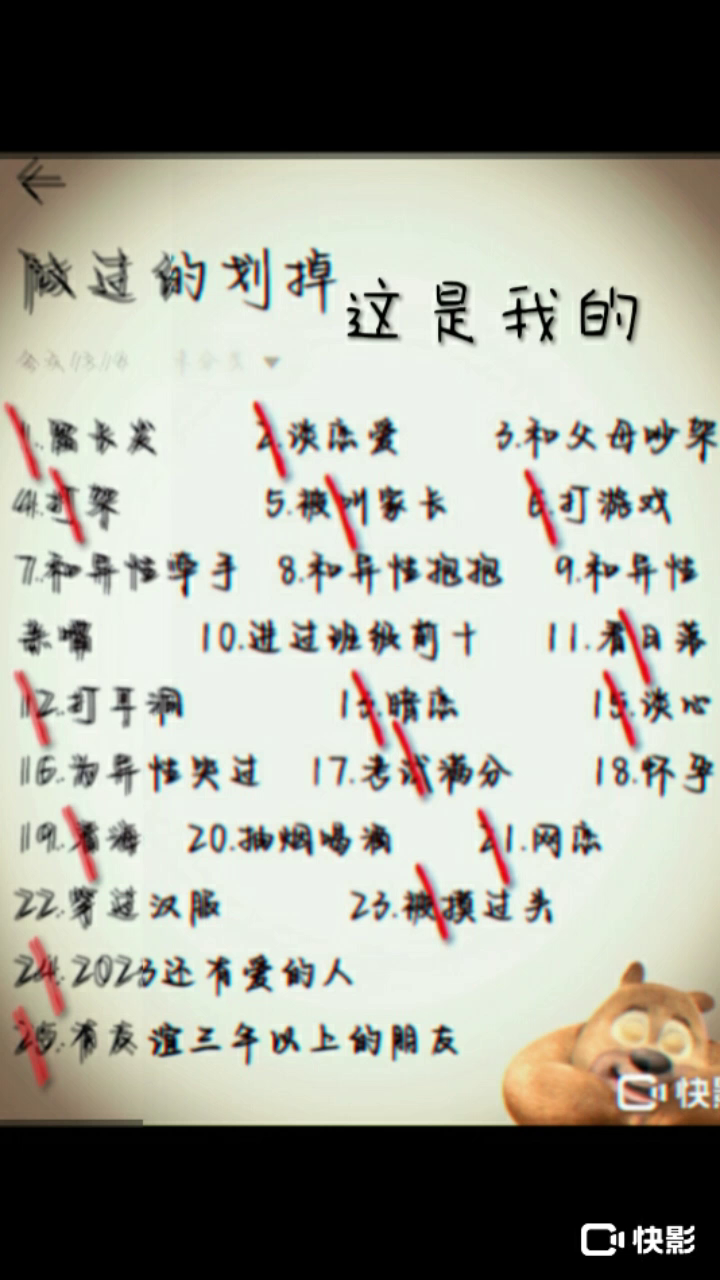 做过的划掉
这是我的
1.留长发 2.谈恋爱 3.和父母吵架
4.打架 5.被叫家长 6.打游戏
7.和异性牵手 8.和异性抱抱 9.和异性
亲嘴 10.进过班级前十 11.看日落
12.打耳洞 13.暗恋 15.谈心
16.为异性哭过 17.考试满分 18.怀孕
19.看海 20.抽烟喝酒 21.网恋
22.穿过汉服 23.被摸过头
24.2023还有爱的人
25.有友谊三年以上的朋友
快影
快影